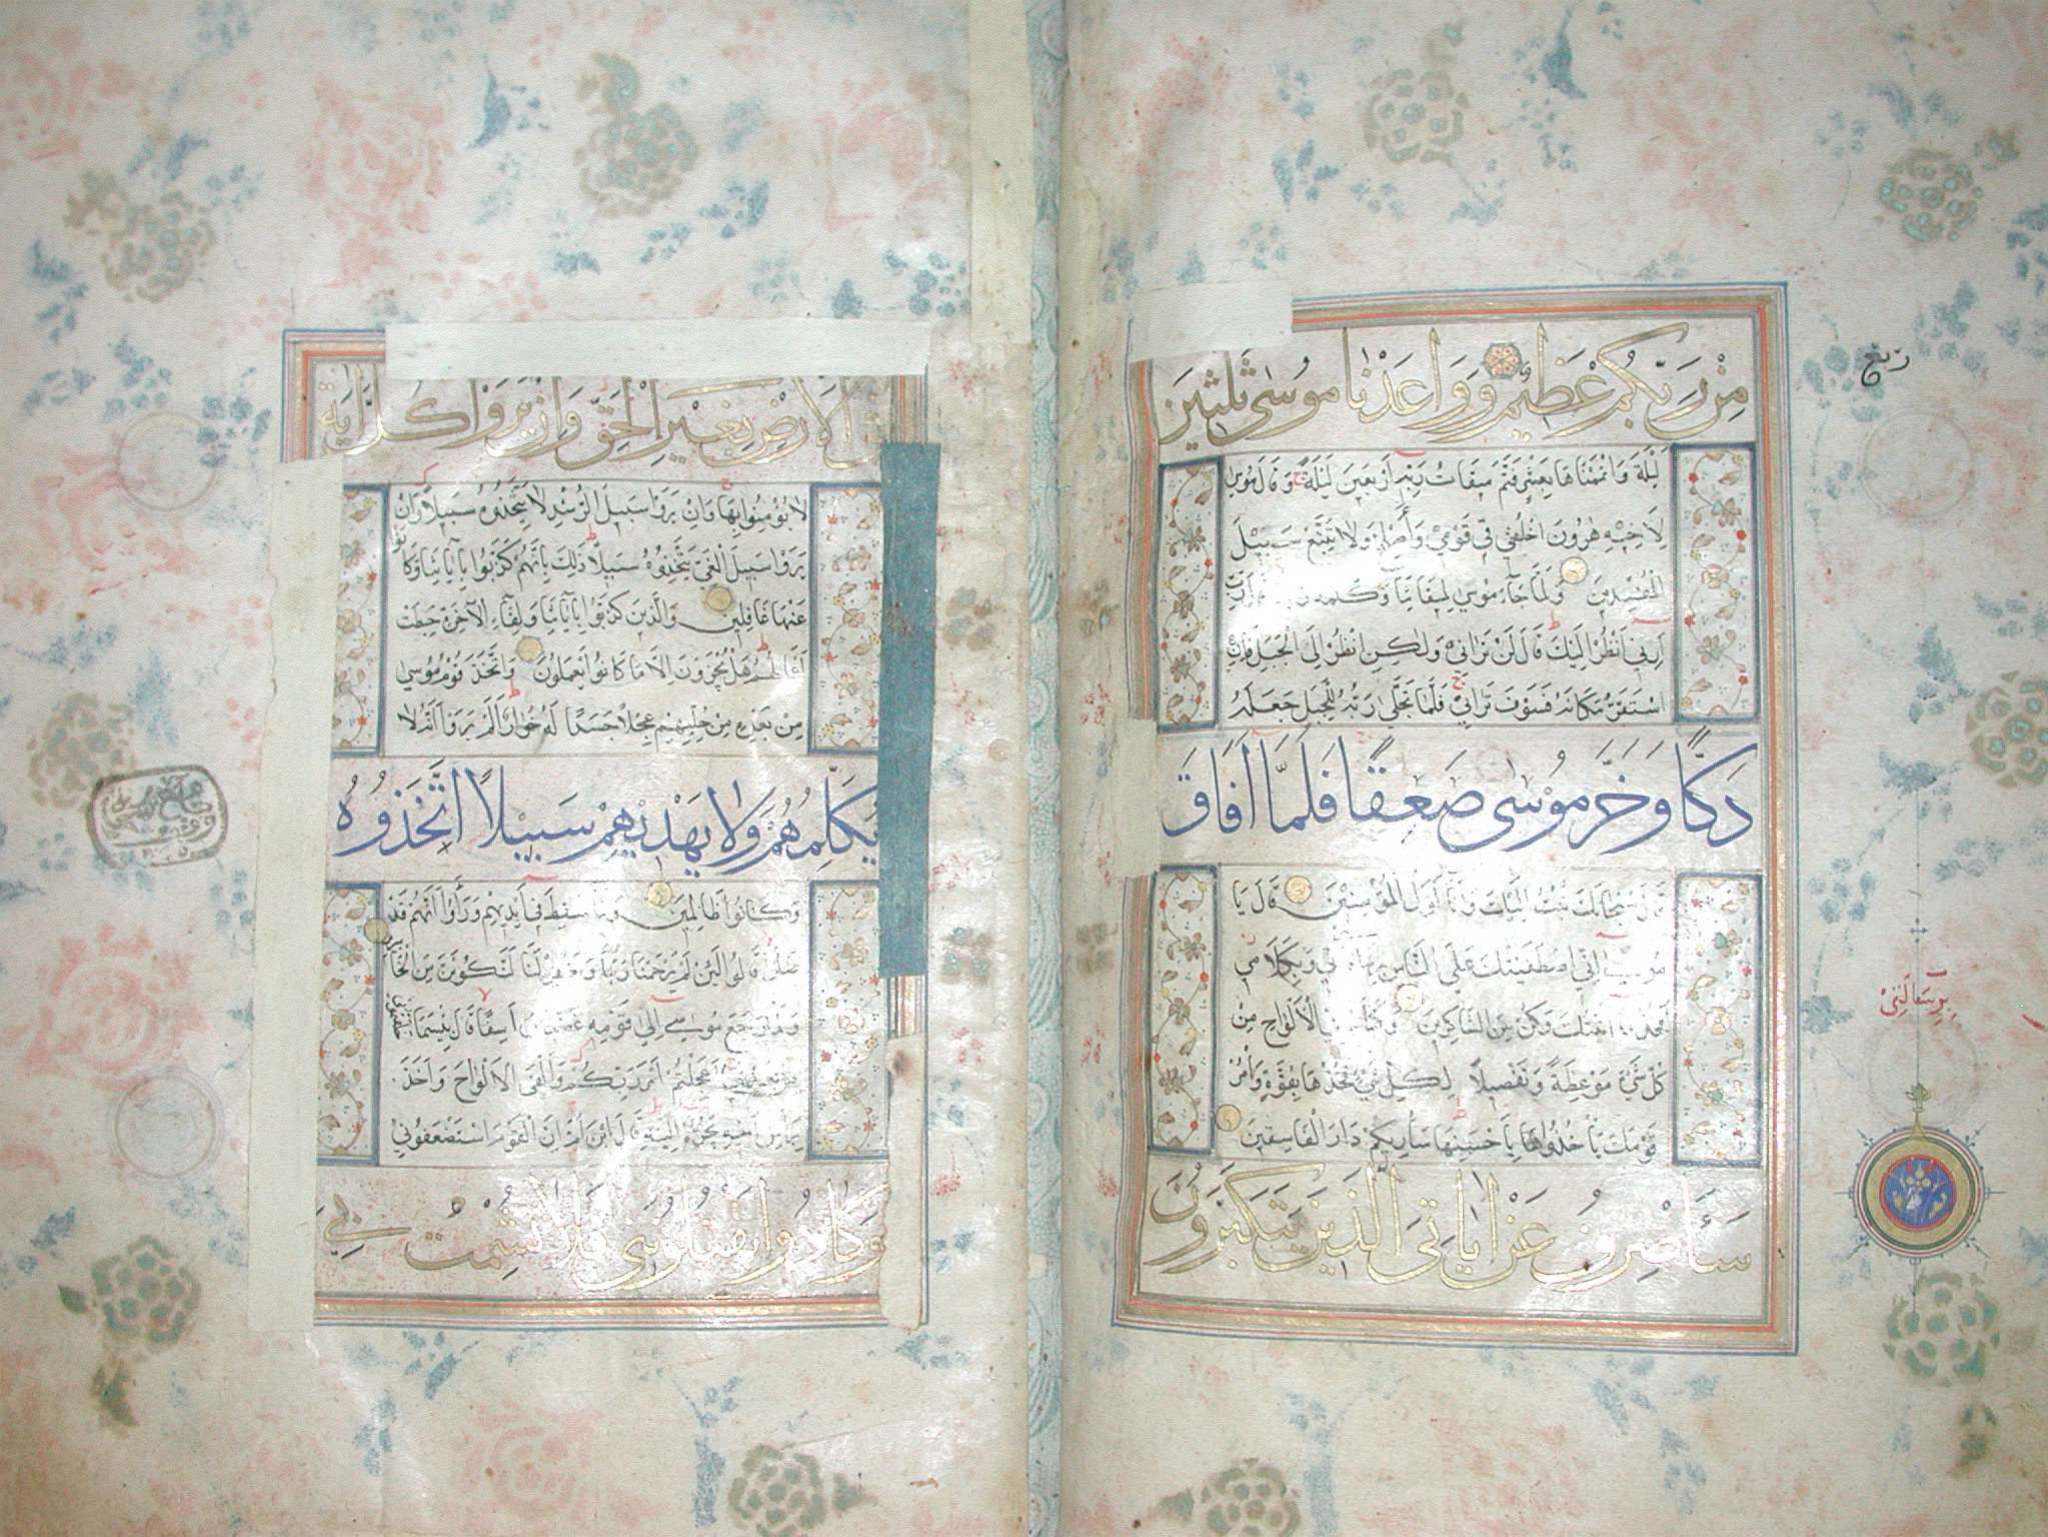 مِنْ رَبِّكُمْ عَظِيمٌ وَوَاعَدْنَا مُوسَى ثَلٰثِينَ
لَيْلَةً وَاَتْمَمْنَاهَا بِعَشْرٍ فَتَمَّ مِيقَاتُ رَبِّهِ اَرْبَعِينَ لَيْلَةً وَقَالَ مُوسٰى
لِاَخِيهِ هٰرُونَ اخْلُفْنِي فِي قَوْمِي وَأَصْلِحْ وَلَا تَتَّبِعْ سَبِيلَ
الْمُفْسِدِينَ وَلَمَّا جَاءَ مُوسٰى لِمِيقَاتِنَا وَكَلَّمَهُ رَبِّ
اَرِنِي اَنْظُرْ اِلَيْكَ قَالَ لَنْ تَرَانِي وَلٰكِنِ انْظُرْ اِلَى الْجَبَلِ فَاِنِ
اسْتَقَرَّ مَكَانَهُ فَسَوْفَ تَرَانِي فَلَمَّا تَجَلّٰى رَبُّهُ لِلْجَبَلِ جَعَلَهُ
دَكًّا وَخَرَّ مُوسٰى صَعِقًا فَلَمَّا اَفَاقَ
قَالَ سُبْحَانَكَ تُبْتُ اِلَيْكَ وَاَنَا اَوَّلُ الْمُؤْمِنِينَ قَالَ يَا
مُوسٰى اِنِّي اصْطَفَيْتُكَ عَلَى النَّاسِ وَبِكَلَامِي
فَخُذْ وَكُنْ مِنَ الشَّاكِرِينَ وَكَتَبْنَا الْاَلْوَاحِ مِنْ
كُلِّ شَيْءٍ مَوْعِظَةً وَتَفْصِيلًا لِكُلِّ شَيْءٍ فَخُذْهَا بِقُوَّةٍ وَأْمُرْ
قَوْمَكَ يَأْخُذُوا بِاَحْسَنِهَا سَاُرِيكُمْ دَارَ الْفَاسِقِينَ
سَاَصْرِفُ عَنْ اٰيَاتِيَ الَّذِينَ يَتَكَبَّرُونَ
ربع
الْاَرْضِ بِغَيْرِ الْحَقِّ وَاِنْ يَرَوْا كُلَّ اٰيَةٍ
لَا يُؤْمِنُوا بِهَا وَاِنْ يَرَوْا سَبِيلَ الرُّشْدِ لَا يَتَّخِذُوهُ سَبِيلًا وَاِنْ
يَرَوْا سَبِيلَ الْغَيِّ يَتَّخِذُوهُ سَبِيلًا ذٰلِكَ بِاَنَّهُمْ كَذَّبُوا بِاٰيَاتِنَا وَكَانُوا
عَنْهَا غَافِلِينَ وَالَّذِينَ كَذَّبُوا بِاٰيَاتِنَا وَلِقَاءِ الْاٰخِرَةِ حَبِطَتْ
اَعْمَالُهُمْ هَلْ يُجْزَوْنَ اِلَّا مَا كَانُوا يَعْمَلُونَ وَاتَّخَذَ قَوْمُ مُوسٰى
مِنْ بَعْدِهِ مِنْ حُلِيِّهِمْ عِجْلًا جَسَدًا لَهُ خُوَارٌ اَلَمْ يَرَوْا اَنَّهُ لَا
يُكَلِّمُهُمْ وَلَا يَهْدِيهِمْ سَبِيلًا اتَّخَذُوهُ
وَكَانُوا ظَالِمِينَ وَلَمَّا سُقِطَ فِي اَيْدِيهِمْ وَرَاَوْا اَنَّهُمْ قَدْ
ضَلُّوا قَالُوا لَئِنْ لَمْ يَرْحَمْنَا رَبُّنَا وَيَغْفِرْ لَنَا لَنَكُونَنَّ مِنَ الْخَاسِرِينَ
وَلَمَّا رَجَعَ مُوسٰى اِلٰى قَوْمِهِ غَضْبَانَ اَسِفًا قَالَ بِئْسَمَا خَلَفْتُمُونِي
مِنْ بَعْدِي اَعَجِلْتُمْ اَمْرَ رَبِّكُمْ وَاَلْقَى الْاَلْوَاحَ وَاَخَذَ
يَجُرُّهُ اِلَيْهِ قَالَ ابْنَ اُمَّ اِنَّ الْقَوْمَ اسْتَضْعَفُونِي
وَكَادُوا يَقْتُلُونَنِي فَلَا تُشْمِتْ بِيَ